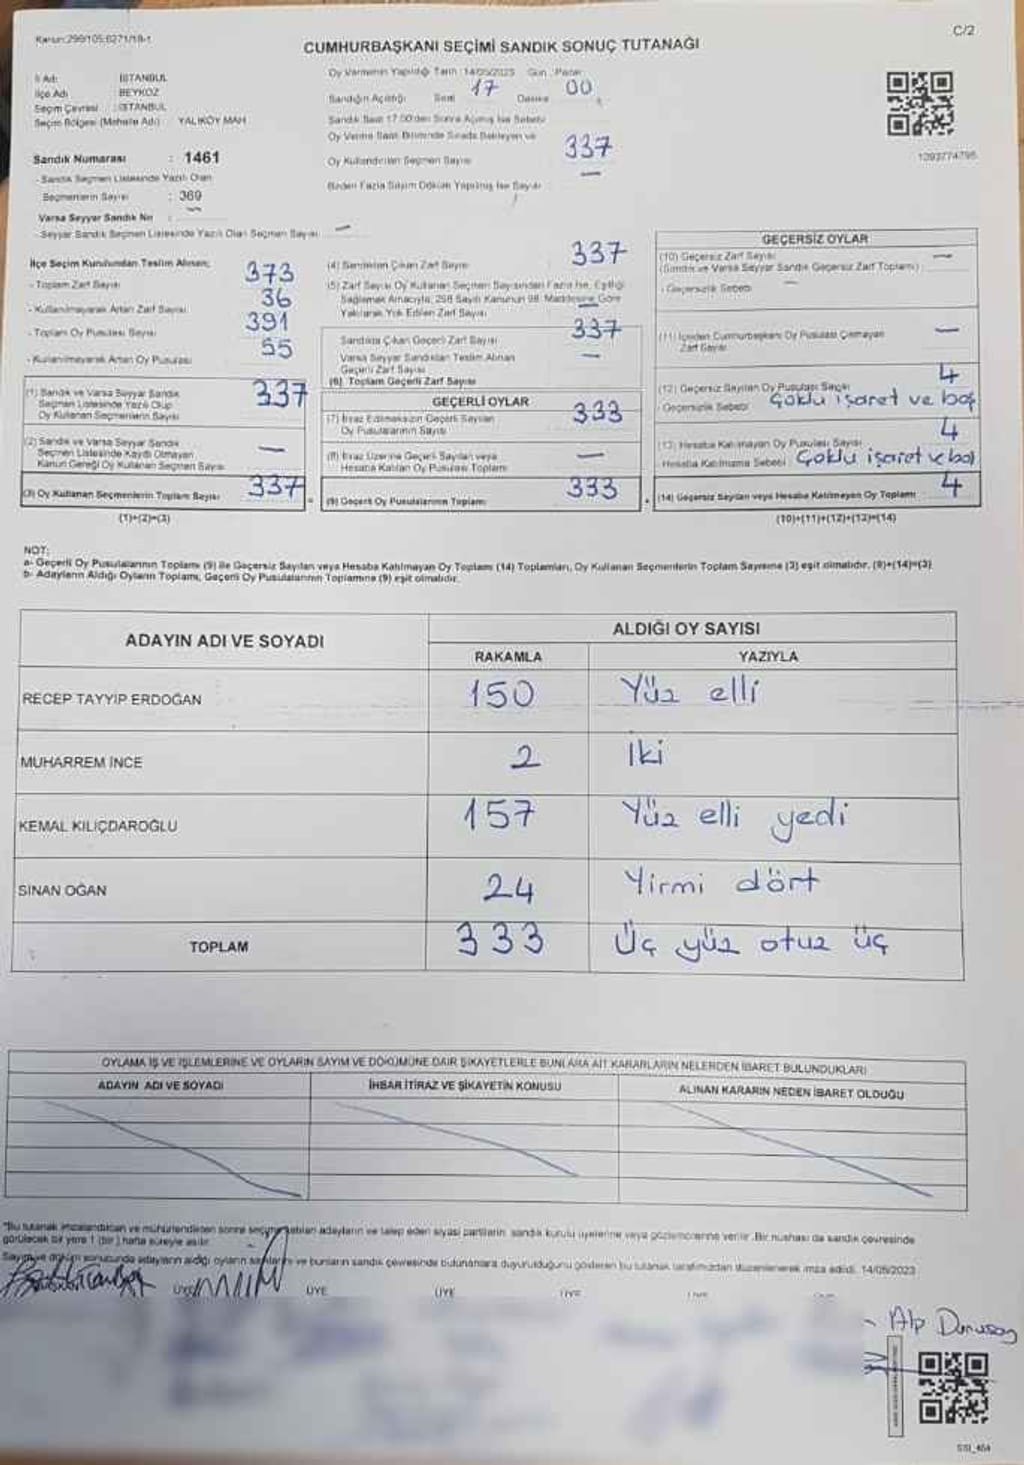 Kanun:298/105;6271/18-1
C/2
CUMHURBAŞKANI SEÇİMİ SANDIK SONUÇ TUTANAĞI
İl Adı : İSTANBUL
İlçe Adı : BEYKOZ
Seçim Çevresi : İSTANBUL
Seçim Bölgesi (Mahalle Adı) : YALIKÖY MAH.
Oy Vermenin Yapıldığı Tarih : 14/05/2023 Gün : Pazar
Sandığın Açıldığı Saat 17 Dakika 00
Sandık Saat 17.00'den Sonra Açılmış İse Sebebi
Oy Verme Saati Bitiminde Sırada Bekleyen ve
Oy Kullandırılan Seçmen Sayısı 337
Birden Fazla Sayım Döküm Yapılmış İse Sayısı : —
Sandık Numarası : 1461
- Sandık Seçmen Listesinde Yazılı Olan
Seçmenlerin Sayısı : 369
Varsa Seyyar Sandık No : —
- Seyyar Sandık Seçmen Listesinde Yazılı Olan Seçmen Sayısı —
1093774795
İlçe Seçim Kurulundan Teslim Alınan;
- Toplam Zarf Sayısı 373
- Kullanılmayarak Artan Zarf Sayısı 36
- Toplam Oy Pusulası Sayısı 391
- Kullanılmayarak Artan Oy Pusulası 55
(1) Sandık ve Varsa Seyyar Sandık
Seçmen Listesinde Yazılı Olup
Oy Kullanan Seçmenlerin Sayısı 337
(2) Sandık ve Varsa Seyyar Sandık
Seçmen Listesinde Kaydı Olmayan
Kanun Gereği Oy Kullanan Seçmen Sayısı —
(3) Oy Kullanan Seçmenlerin Toplam Sayısı 337
(1)+(2)=(3)
(4) Sandıktan Çıkan Zarf Sayısı 337
(5) Zarf Sayısı Oy Kullanan Seçmen Sayısından Fazla İse, Eşitliği
Sağlamak Amacıyla, 298 Sayılı Kanunun 98. Maddesine Göre
Yakılarak Yok Edilen Zarf Sayısı —
Sandıkta Çıkan Geçerli Zarf Sayısı 337
Varsa Seyyar Sandıktan Teslim Alınan
Geçerli Zarf Sayısı —
(6) Toplam Geçerli Zarf Sayısı
GEÇERLİ OYLAR
(7) İtiraz Edilmeksizin Geçerli Sayılan
Oy Pusulalarının Sayısı 333
(8) İtiraz Üzerine Geçerli Sayılan veya
Hesaba Katılan Oy Pusulası Toplamı —
(9) Geçerli Oy Pusulalarının Toplamı 333
GEÇERSİZ OYLAR
(10) Geçersiz Zarf Sayısı
(Sandık ve Varsa Seyyar Sandık Geçersiz Zarf Toplamı) —
- Geçersizlik Sebebi —
(11) İçinden Cumhurbaşkanı Oy Pusulası Çıkmayan
Zarf Sayısı —
(12) Geçersiz Sayılan Oy Pusulası Sayısı 4
- Geçersizlik Sebebi Çoklu işaret ve boş
(13) Hesaba Katılmayan Oy Pusulası Sayısı 4
Hesaba Katılmama Sebebi Çoklu işaret ve boş
(14) Geçersiz Sayılan veya Hesaba Katılmayan Oy Toplamı 4
(10)+(11)+(12)+(13)=(14)
NOT:
a- Geçerli Oy Pusulalarının Toplamı (9) ile Geçersiz Sayılan veya Hesaba Katılmayan Oy Toplamı (14) Toplamları, Oy Kullanan Seçmenlerin Toplam Sayısına (3) eşit olmalıdır. (9)+(14)=(3)
b- Adayların Aldığı Oyların Toplamı, Geçerli Oy Pusulalarının Toplamına (9) eşit olmalıdır.
ADAYIN ADI VE SOYADI
ALDIĞI OY SAYISI
RAKAMLA YAZIYLA
RECEP TAYYİP ERDOĞAN 150 Yüz elli
MUHARREM İNCE 2 İki
KEMAL KILIÇDAROĞLU 157 Yüz elli yedi
SİNAN OĞAN 24 Yirmi dört
TOPLAM 333 Üç yüz otuz üç
OYLAMA İŞ VE İŞLEMLERİNE VE OYLARIN SAYIM VE DÖKÜMÜNE DAİR ŞİKAYETLERLE BUNLARA AİT KARARLARIN NELERDEN İBARET BULUNDUKLARI
ADAYIN ADI VE SOYADI İHBAR İTİRAZ VE ŞİKAYETİN KONUSU ALINAN KARARIN NEDEN İBARET OLDUĞU
*Bu tutanak imzalandıktan ve mühürlendikten sonra seçime katılan adayların ve talep eden siyasi partilerin sandık kurulu üyelerine veya gözlemcilerine verilir. Bir nüshası da sandık çevresinde
görülecek bir yere 1 (bir) hafta süreyle asılır.
Sayım ve döküm sonucunda adayların aldığı oyların sayılarını ve bunların sandık çevresinde bulunanlara duyurulduğunu gösteren bu tutanak tarafımızdan düzenlenerek imza edildi. 14/05/2023
ÜYE ÜYE ÜYE ÜYE
Alp
SSI_464